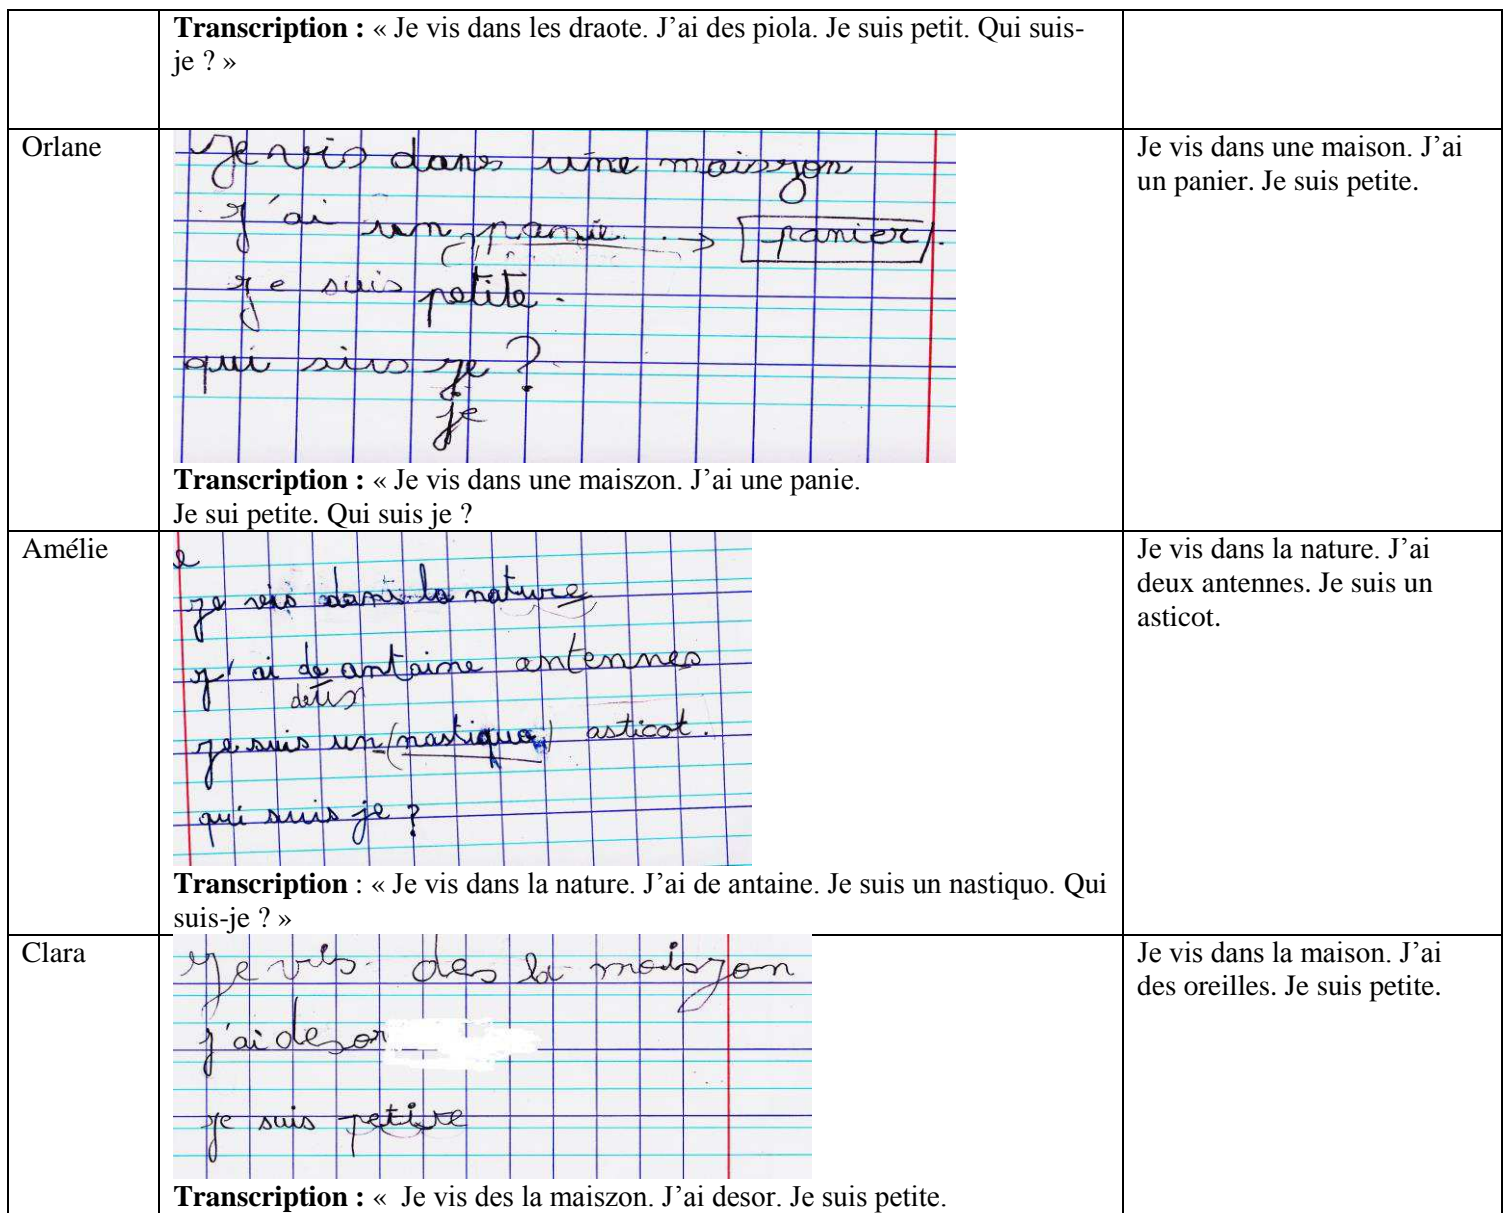 Transcription : « Je vis dans les draote. J’ai des piola. Je suis petit. Qui suis-
je ? »
Orlane
Je vis dans une maiszon
j'ai un panie. → panier.
je suis petite.
qui siuis je ?
je
Transcription : « Je vis dans une maiszon. J’ai une panie.
Je sui petite. Qui suis je ?
Je vis dans une maison. J’ai
un panier. Je suis petite.
Amélie
e
je vis dans la nature
j'ai de antaine antennes
deux
je suis un (nastiquo) asticot.
qui suis je ?
Transcription : « Je vis dans la nature. J’ai de antaine. Je suis un nastiquo. Qui
suis-je ? »
Je vis dans la nature. J’ai
deux antennes. Je suis un
asticot.
Clara
Je vis des la maiszon
j'ai desor
je suis petite
Transcription : « Je vis des la maiszon. J’ai desor. Je suis petite.
Je vis dans la maison. J’ai
des oreilles. Je suis petite.